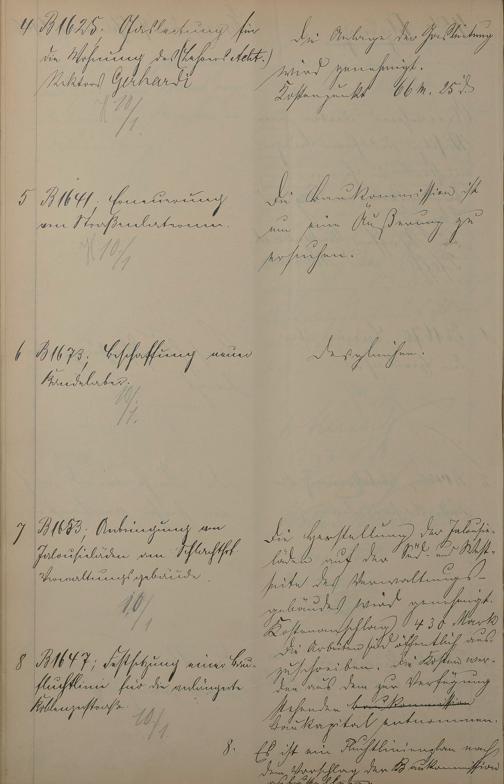 4 B 1625. Gasleitung für
die Wohnung des (Lehrers Acht.)
Rektors Gerhardi
10/1.
Die Anlage der Gasleitung
wird genehmigt.
Kostenpunkt 66 M. 25 d.
5 B 1641; Erneuerung
von Straßenlaternen.
10/1
Die Baukommission ist
um eine Äußerung zu
ersuchen.
6 B 1673; Beschaffung neuer
Kandelaber.
10/1.
Desgleichen.
7 B 1653. Anbringung von
Jalousieläden am Schlachthof
Verwaltungsgebäude.
10/1
Die Herstellung der Jalousie-
läden auf der Süd- und West-
seite des Verwaltungs-
gebäudes wird genehmigt.
Kostenanschlag 430 Mark
Die Arbeiten sind öffentlich aus-
zuschreiben. Die Kosten wer-
den aus dem zur Verfügung
stehenden Baukommission
Baukapital entnommen.
8 B 1647; Festsetzung einer Bau-
fluchtlinie für die verlängerte
10/1
8. Es ist ein Fluchtlinienplan nach
dem Vorschlag der Baukommission